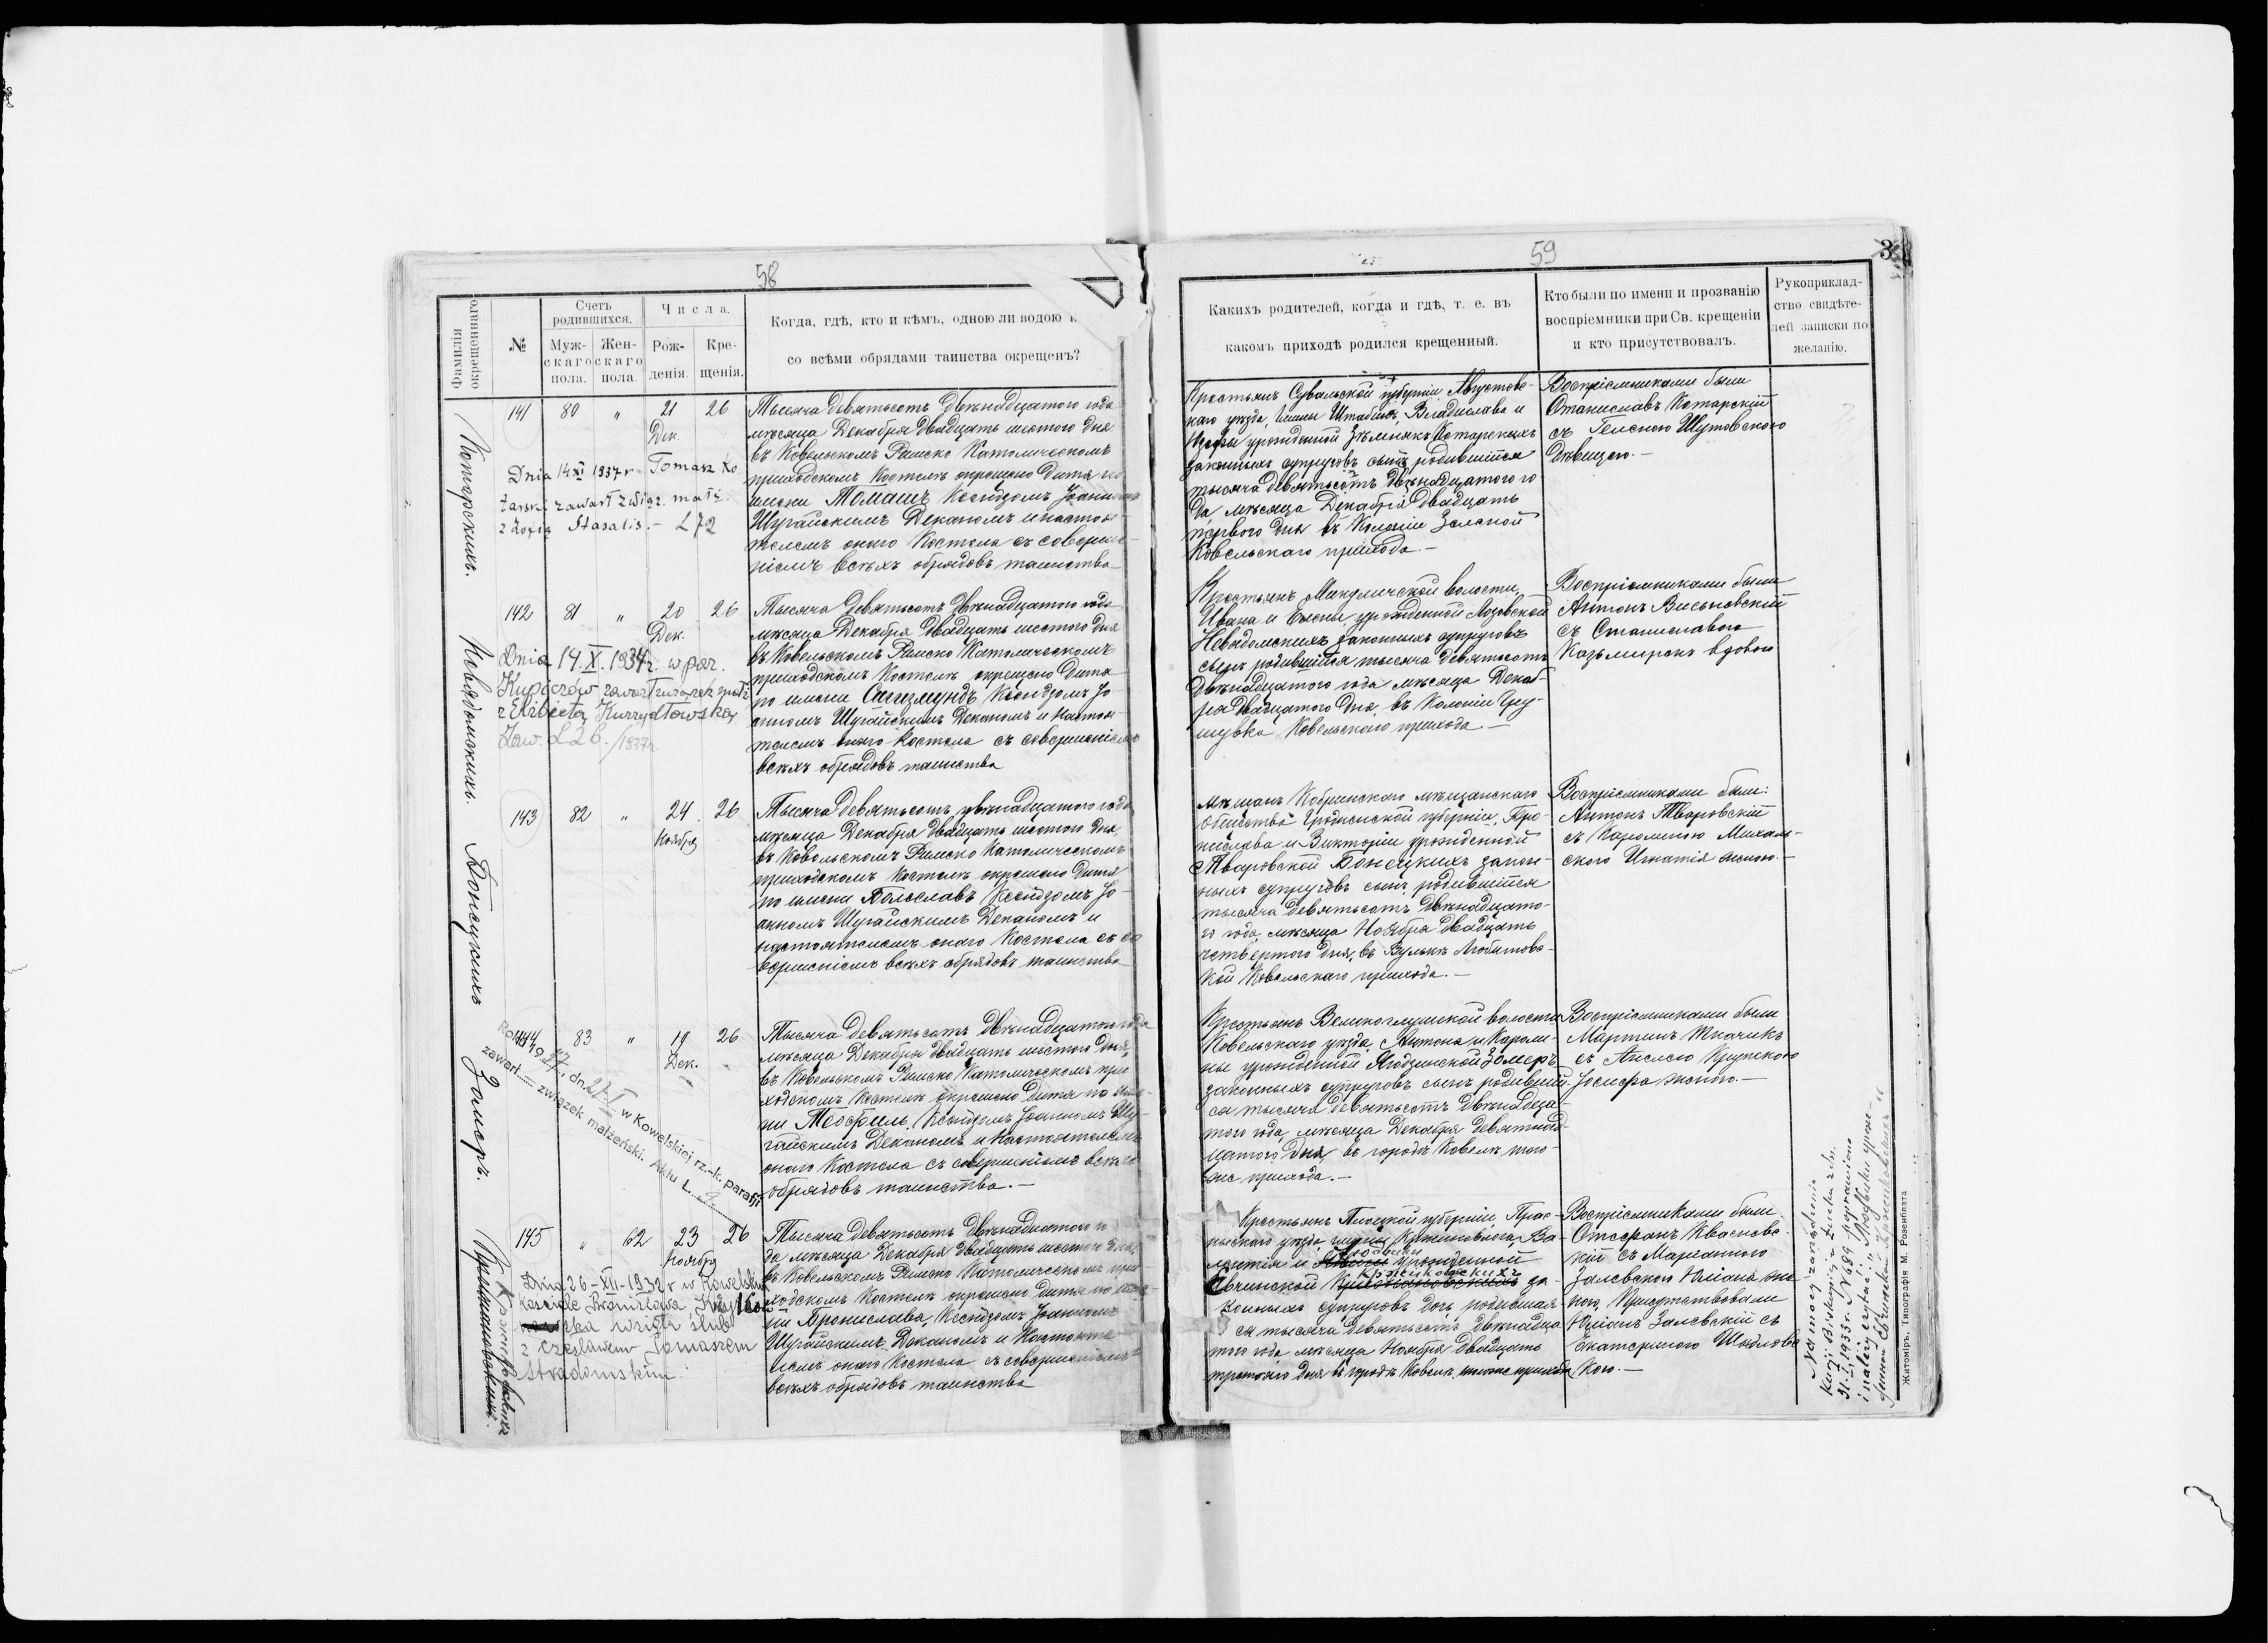 58
Фамилія окрещеннаго.
№
Счетъ родившихся.
Муж-скаго пола.
Жен-скаго пола.
Числа.
Рож-денія.
Кре-щенія.
Когда, гдѣ, кто и кѣмъ, одною ли водою и
со всѣми обрядами таинства окрещенъ?
Котарскихъ.
141 80 " 21 26
Дек.
Dnia 14 XI 1937 r Tomasz Ko
tarski zawarł związ. małż.
z Zofią Stasalis. - L 72
Тысяча девятьсотъ двѣнадцатого года
мѣсяца Декабря двадцать шестого дня
въ Ковельскомъ Римско Католическомъ
приходскомъ Костелѣ окрещено дитя по
имени Томашъ Ксендзомъ Іоанномъ
Шугайскимъ Деканомъ и настоя-
телемъ онаго Костела съ соверше-
ніемъ всѣхъ обрядовъ таинства
Невядомскихъ.
142 81 " 20 26
Дек.
Dnia 14. X. 1934 r. w par.
Kupiczów zawarł związek małż
z Elżbietą Kurzydłowską
Zaw. L 26. /1937 r.
Тысяча девятьсотъ двѣнадцатого года
мѣсяца Декабря двадцать шестого дня
въ Ковельскомъ Римско Католическомъ
приходскомъ Костелѣ окрещено дитя
по имени Сигизмундъ Ксендзомъ Іо
анномъ Шугайскимъ Деканомъ и настоя-
телемъ онаго Костела съ совершеніемъ
всѣхъ обрядовъ таинства
Бонецкихъ
143 82 " 24 26
Ноября
Тысяча девятьсотъ двѣнадцатого года
мѣсяца Декабря двадцать шестого дня
въ Ковельскомъ Римско Католическомъ
приходскомъ Костелѣ окрещено дитя
по имени Болеславъ Ксендзомъ Іо-
анномъ Шугайскимъ Деканомъ и
настоятелемъ онаго Костела съ со
вершеніемъ всѣхъ обрядовъ таинства
Зомеръ.
144 83 " 19 26
Дек.
Roku 1937, dn. 27.I w Kowelskiej rz.-k. parafji
zawarł związek małżeński. Aktu L.
Тысяча девятьсотъ двѣнадцатого года
мѣсяца Декабря двадцать шестого дня,
въ Ковельскомъ Римско Католическомъ при-
ходскомъ Костелѣ окрещено дитя по име-
ни Теофиль, Ксендзомъ Іоанномъ Шу-
гайскимъ Деканомъ и настоятелемъ
онаго Костела съ совершеніемъ всѣхъ
обрядовъ таинства. —
145 " 62 23 26
Ноября
Dnia 26-XII-1932 r w Kowelskim
Kościele Bronisława
wzięła ślub
z Czesławem Tomaszem
Stradomskim
Тысяча девятьсотъ двѣнадцатого го
да мѣсяца Декабря двадцать шестого дня
въ Ковельскомъ Римско Католическомъ при-
ходскомъ Костелѣ окрещено дитя по име-
ни Бронислава, Ксендзомъ Іоанномъ
Шугайскимъ Деканомъ и Настояте-
лемъ онаго Костела съ совершеніемъ
всѣхъ обрядовъ таинства
59
3
Какихъ родителей, когда и гдѣ, т. е. въ
какомъ приходѣ родился крещенный.
Кто были по имени и прозванію
воспріемники при Св. крещеніи
и кто присутствовалъ.
Рукоприклад-
ство свидѣте-
лей записки по
желанію.
Крестьянъ Сувальской губерніи Августовс-
каго уѣзда, гмины Штабинъ, Владислава и
Юзефы урожденной Зѣлинякъ Котарскихъ
законныхъ супруговъ сынъ, родившійся
тысяча девятьсотъ двѣнадцатого го
да мѣсяца Декабря двадцать
перваго дня въ Колоніи Зеленой
Ковельскаго прихода. —
Воспріемниками были
Станиславъ Котарскій
съ Геленою Шутовскою
дѣвицею. —
Крестьянъ Микуличской волости,
Ивана и Елены урожденной Лозовской
Невядомскихъ законныхъ супруговъ
сынъ родившійся тысяча девятьсотъ
двѣнадцатого года мѣсяца Декаб-
ря двадцатого дня въ Колоніи Гру-
шувка Ковельскаго прихода. —
Воспріемниками были
Антонъ Висьновскій
съ Станиславою
Козьмирекъ вдовою
Мѣщанъ Кобринскаго мѣщанскаго
Общества Гродненской губерніи, Бро-
нислава и Викторіи урожденной
Тваровской Бонецкихъ закон-
ныхъ супруговъ сынъ, родившійся
тысяча девятьсотъ двѣнадцато-
го года мѣсяца Ноября двадцать
четвертого дня, въ Вулькѣ Любитовс-
кой Ковельскаго прихода. —
Воспріемниками были:
Антонъ Тваровскій
съ Каролиною Михаль-
скою Игнатія женою. —
Крестьянъ Великоглушской волости
Ковельскаго уѣзда, Антона и Кароли-
ны урожденной Ягодзинской Зомеръ
законныхъ супруговъ сынъ родившій-
ся тысяча девятьсотъ двѣнадца-
того года, мѣсяца Декабря девятнад-
цатого дня, въ городѣ Ковелѣ того-
же прихода. —
Воспріемниками были
Мартинъ Ткачикъ
съ Анелею Крупскою
Іосифа женою. —
Крестьянъ Плоцкой губерніи, Прас-
нышскаго уѣзда гмины Ва-
лентія и Людвики урожденной
Овчинской Кржижковскихъ за-
конныхъ супруговъ дочь, родившая-
ся тысяча девятьсотъ двѣнадца
того года мѣсяца Ноября двадцать
третьяго дня въ городѣ Ковелѣ, тогоже прихода
Воспріемниками были
Стефанъ Квасновс-
кій съ Маріанною
Залевскою Юліана же-
ною, Присутствовали
Юліанъ Залевскій съ
Екатериною Шидловс
кою. —
Na mocy zarządzenia
Kurji Biskupiej z Łucka z dn.
31.I.1933 r. N 689 poprawiono
i należy czytać: "Людвики урож-
денной Овчинской Кржижковскихъ"
Житоміръ, Типографія М. Розенблата